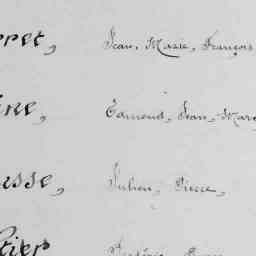 rret, Jean, Marie, François
ine, Edmond, Jean, Mar
usse, Julien, Pierre,
tier